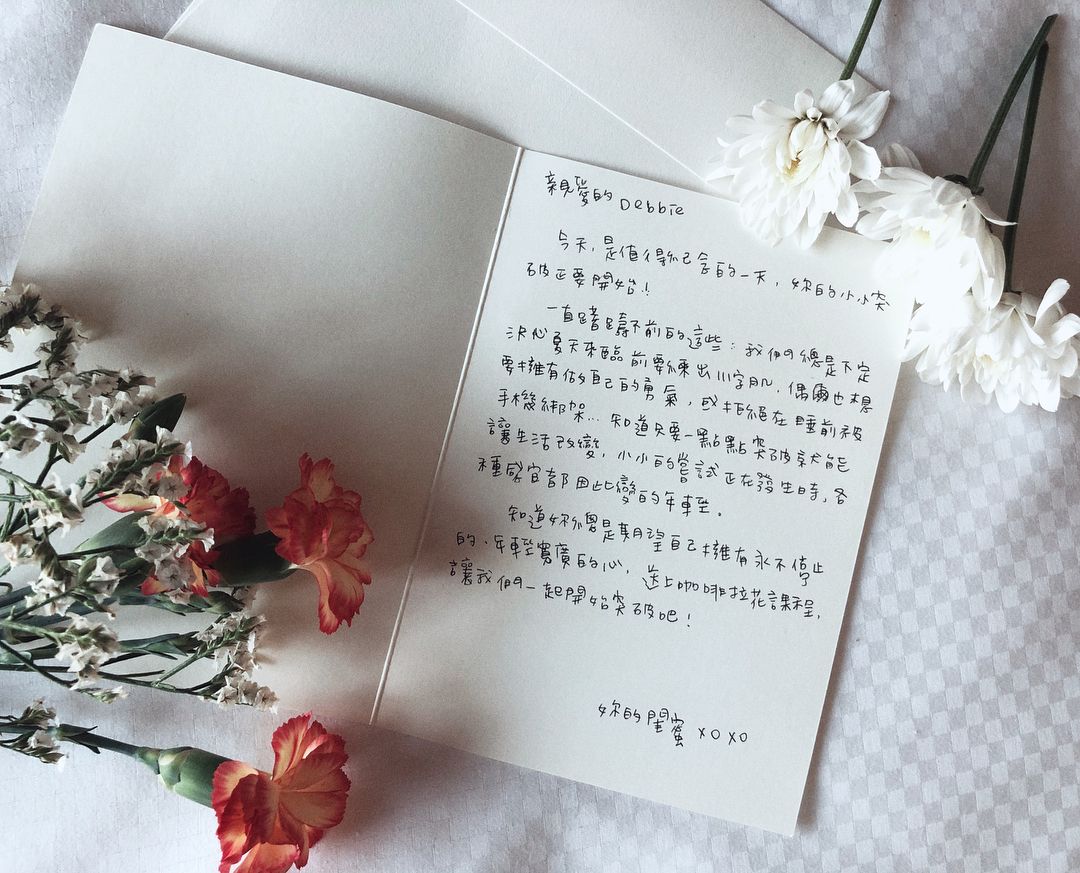 親愛的 Debbie
今天，是值得紀念的一天，妳的小小突
破正要開始！
一直躊躇不前的這些：我們總是下定
決心夏天來臨前要練出川字肌，偶爾也想
要擁有做自己的勇氣，或拒絕在睡前被
手機綁架... 知道只要一點點突破就能
讓生活改變，小小的嘗試正在發生時，各
種感官都因此變的年輕。
知道妳總是期望自己擁有永不停止
的、年輕寬廣的心，送上咖啡拉花課程，
讓我們一起開始突破吧！
妳的閨蜜 xoxo